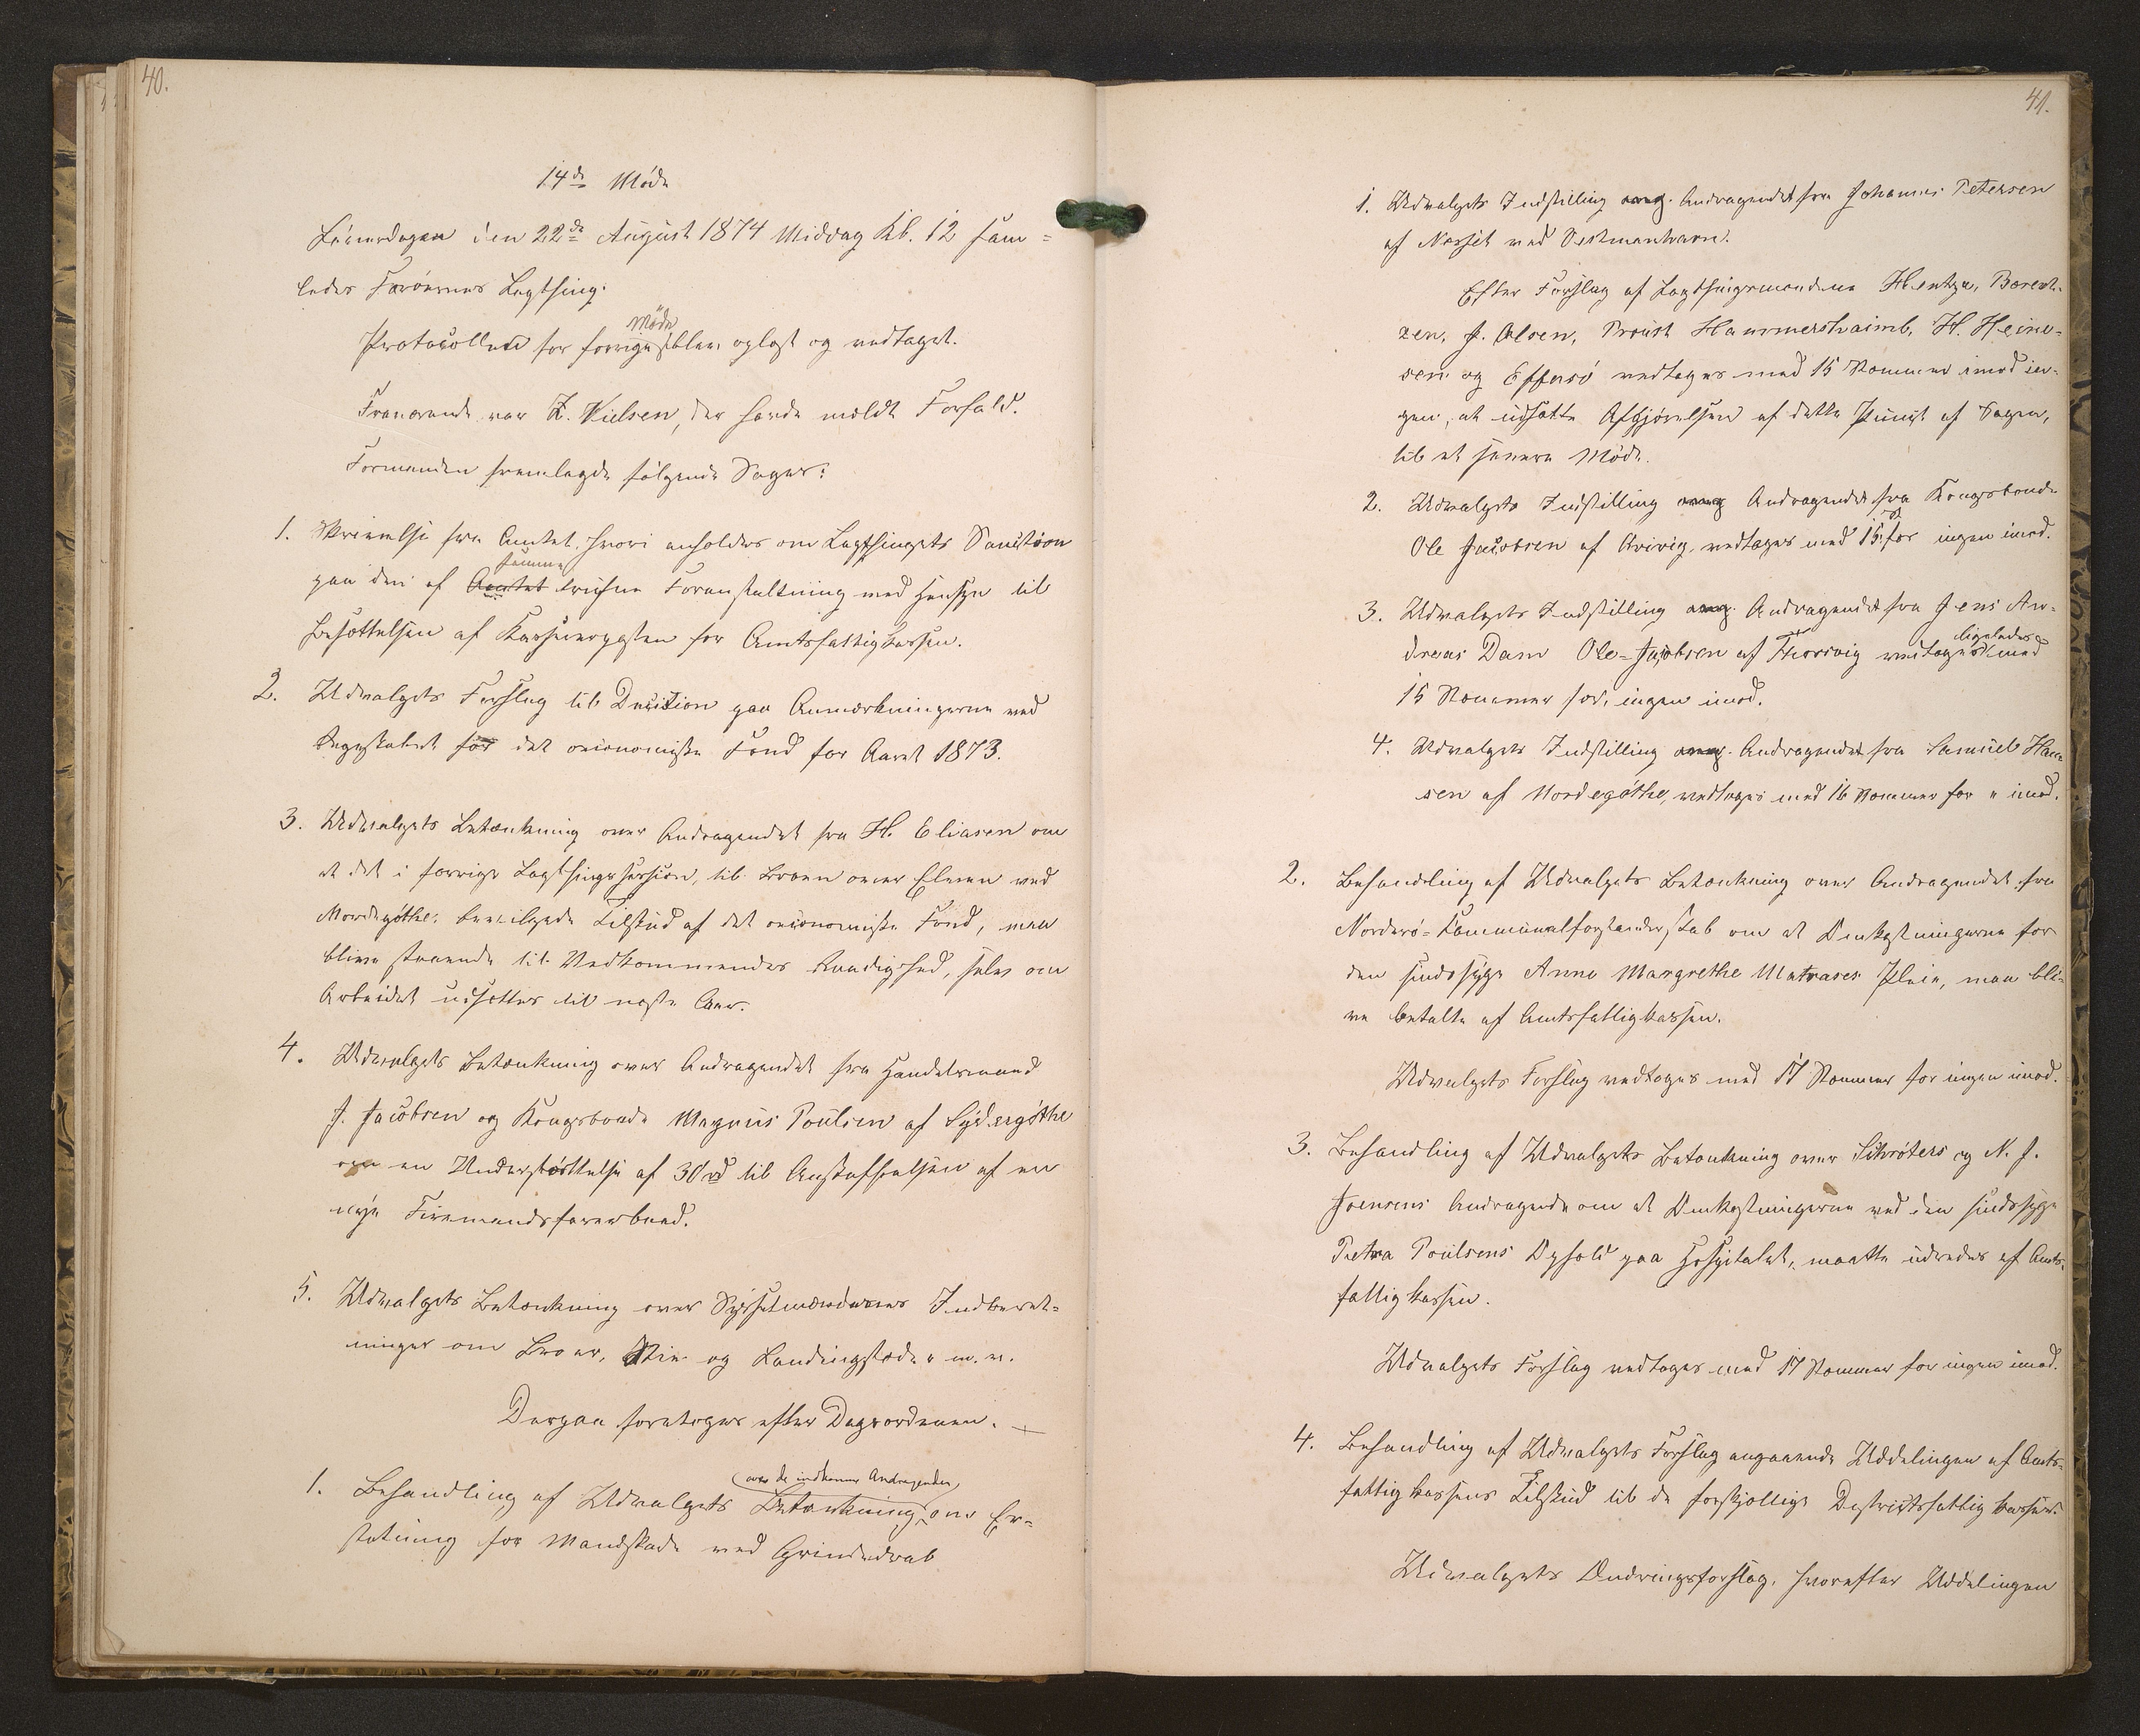 40.
14de Möde
Löverdagen den 22de August 1874 Middag Kl. 12 sam=
ledes Færöernes Lagthing.
Möde
Protocollen for forrige blev oplæst og vedtaget.
Fraværende var Z. Nielsen, der havde meldt Forfald.
Formanden fremlagde fölgende Sager:
1. Skrivelse fra Amtet, hvori anholdes om Lagthingets Sanction
samme
paa den af Amtet trufne Foranstaltning med Hensyn til
Besættelsen af Kassererposten for Amtsfattigkassen.
2. Udvalgets Forslag til Decision paa Anmærkningerne ved
Regnskabet for det oeconomiske Fond for Aaret 1873.
3. Udvalgets Betænkning over Andragendet fra H. Eliasen om
at det i forrige Lagthingssession, til Broen over Elven ved
Nordegöthe, bevilgede Tilskud af det oeconomiske Fond, maa
blive staaende til Vedkommendes Raadighed, selv om
Arbeidet udsættes til næste Aar.
4. Udvalgets Betænkning over Andragendet fra Handelsmand
J. Jacobsen og Kongsbonde Magnus Poulsen af Sydergöthe
om en Understöttelse af 30 rd til Anskaffelsen af en
nye Firemandsfarerbaad.
5. Udvalgets Betænkning over Sysselmændenes Indberet=
ninger om Broer, Stier og Landingsstæder m. v.
Derpaa foretoges efter Dagsordenen.
over de indkomne Andragender
1. Behandling af Udvalgets Betænkning om Er=
statning for Mandskade ved Grindedrab
41.
1. Udvalgets Indstilling ang. Andragendet fra Johannes Petersen
af Nesset ved Vestmanhavn.
Efter Forslag af Lagthingsmændene Hentze, Barent-
zen, J. Olsen, Proust Hammershaimb, H. Heine-
sen og Effersö vedtoges med 15 Stemmer imod in-
gen, at udsætte Afgjörelsen af dette Punct af Sagen,
til et senere Möde.
2. Udvalgets Indstilling ang Andragendet fra Kongsbonde
Ole Jacobsen af Qvivig, vedtoges med 15 St for ingen imod.
3. Udvalgets Indstilling ang. Andragendet fra Jens An-
ligeledes
dreas Dam Ole=Jacobsen af Thorsvig vedtoges med
15 Stemmer for, ingen imod.
4. Udvalgets Indstilling ang. Andragendet fra Samuel Han-
sen af Nordegöthe, vedtoges med 16 Stemmer for " imod.
2. Behandling af Udvalgets Betænkning over Andragendet fra
Norderö=Kommunalforstanderskab om at Omkostningerne for
den sindssyge Anne Margrethe Matrases Pleie, maa bli-
ve betalte af Amtsfattigkassen.
Udvalgets Forslag vedtoges med 17 Stemmer for ingen imod.
3. Behandling af Udvalgets Betænkning over Schröters og N. J.
Joensens Andragende om at Omkostningerne ved den sindssyge
Petra Poulsens Ophold paa Hospitalet, maatte udredes af Amts-
fattigkassen.
Udvalgets Forslag vedtoges med 17 Stemmer for ingen imod.
4. Behandling af Udvalgets Forslag angaaende Uddelingen af Amts-
fattigkassens Tilskud til de forskjellige Destrictsfattigkasser.
Udvalgets Ændringsforslag, hvorefter Uddelingen